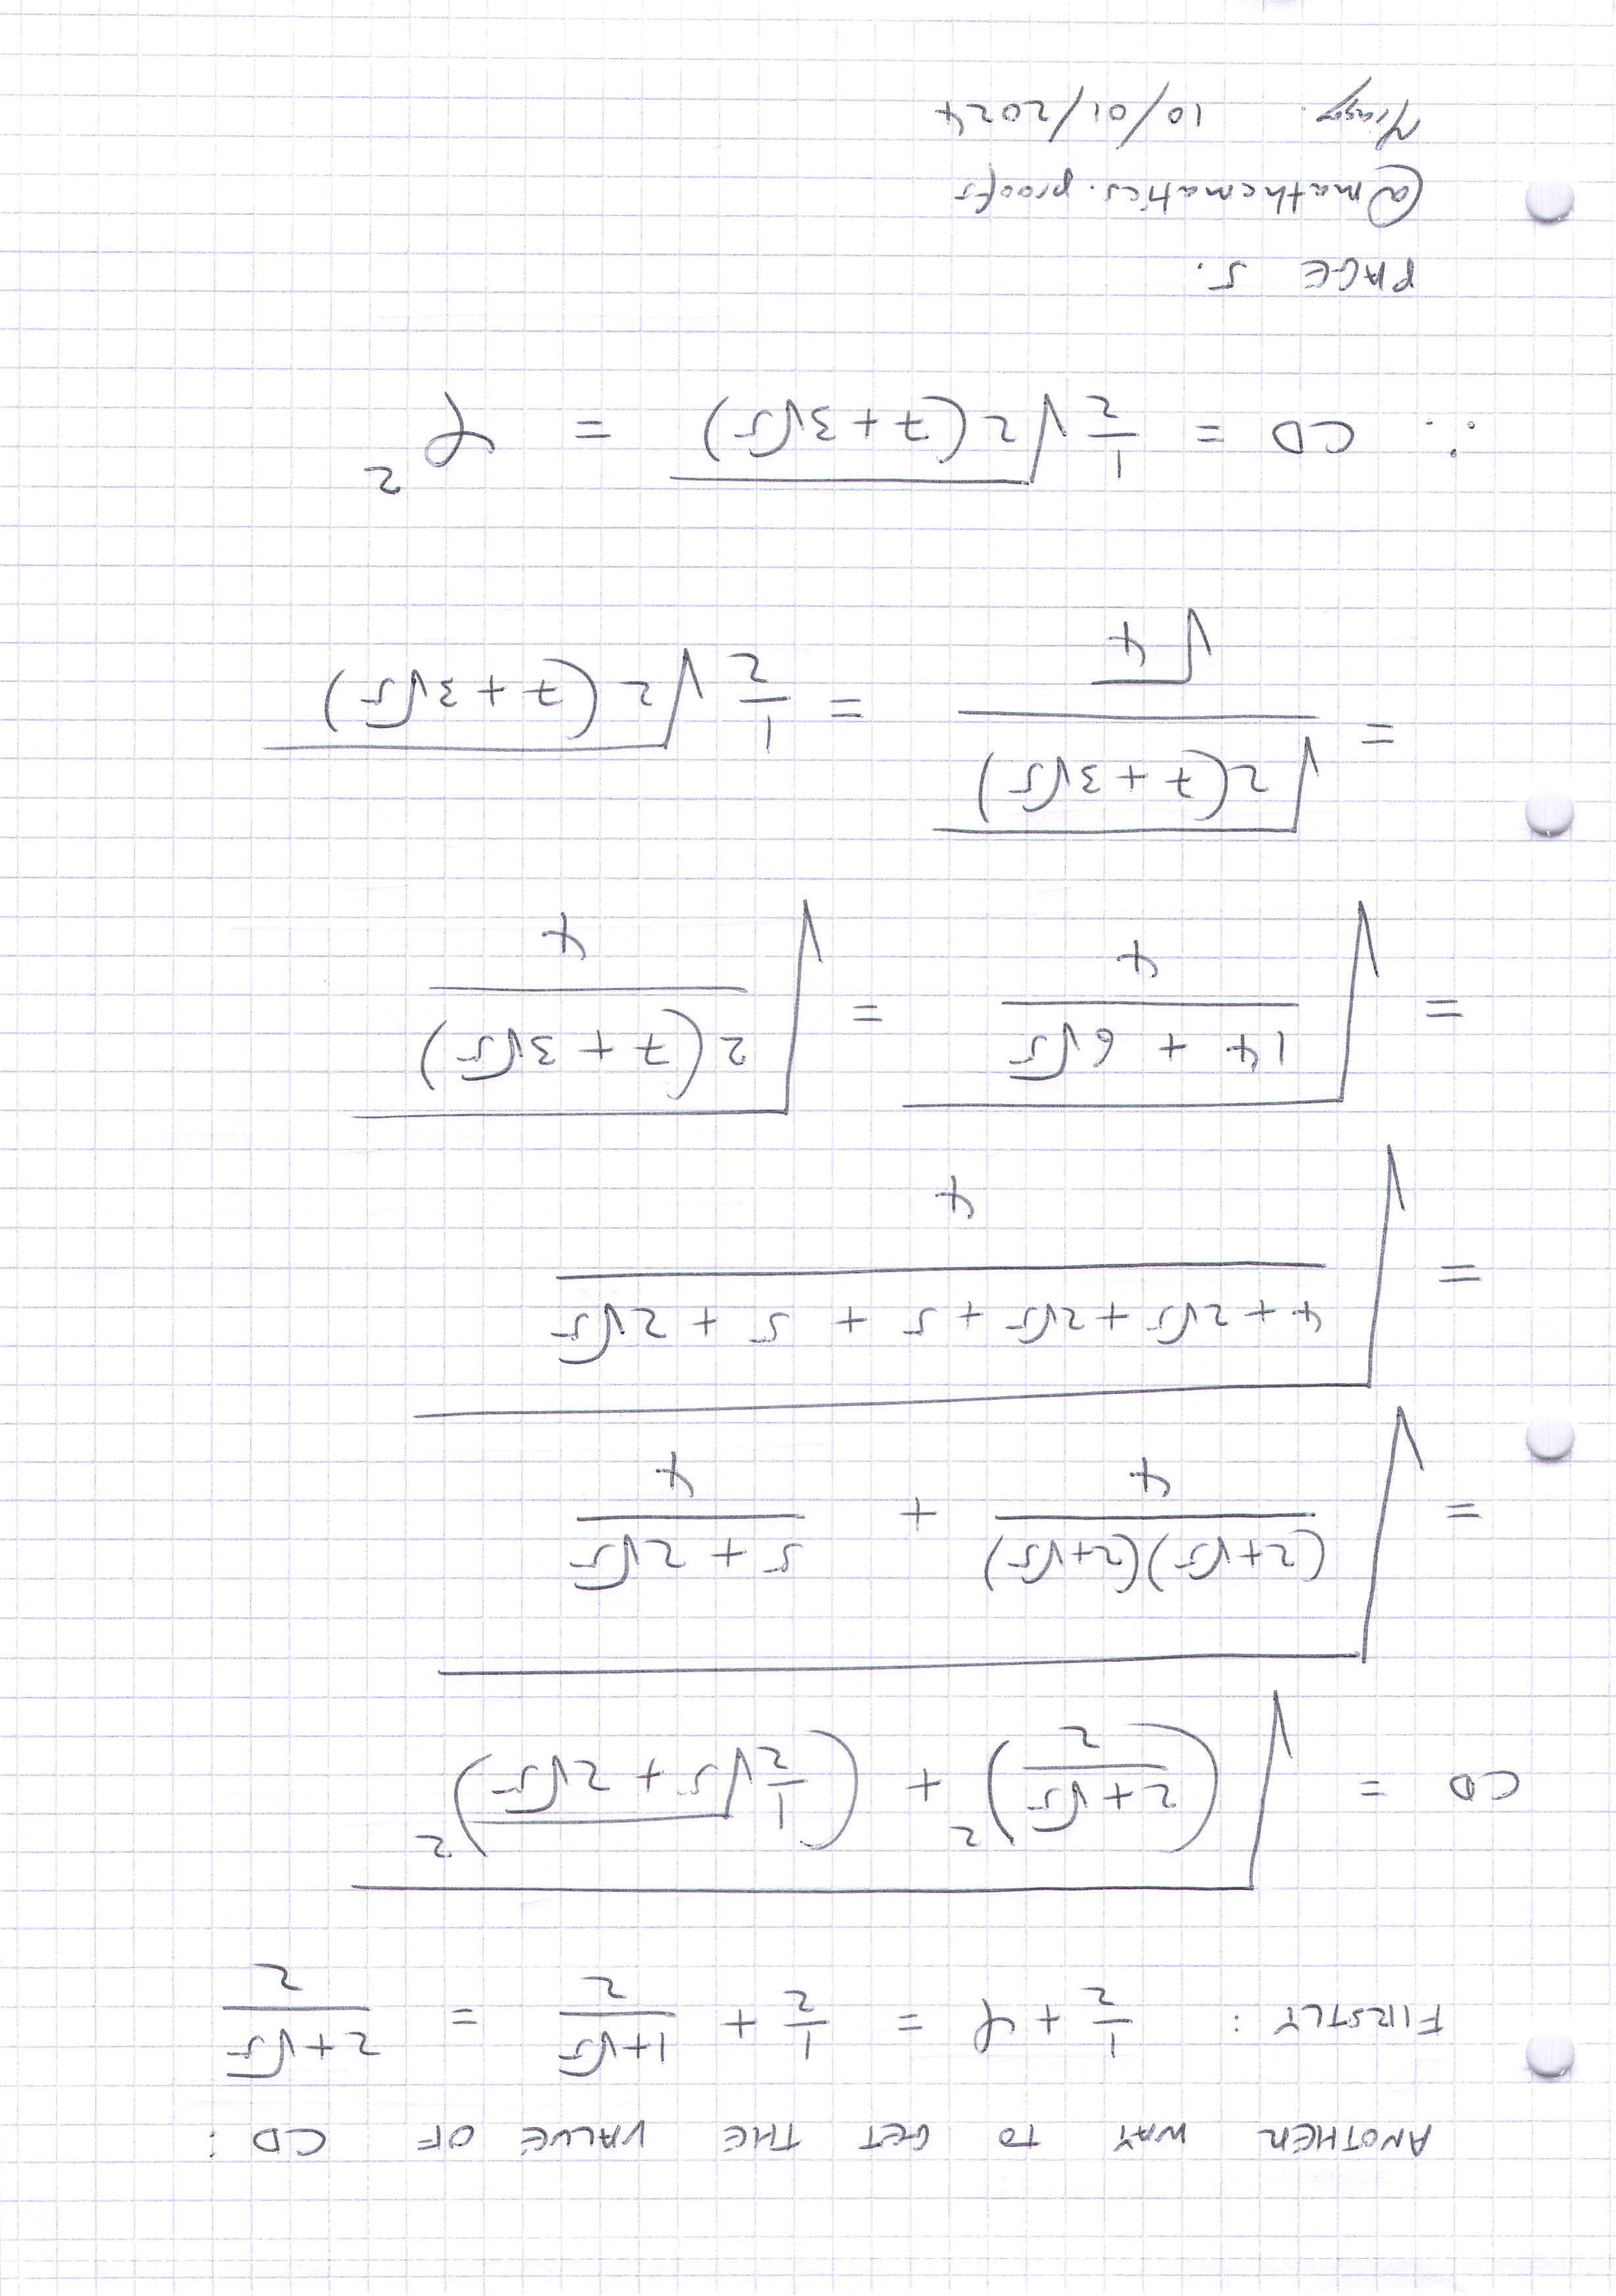 ANOTHER WAY TO GET THE VALUE OF CD :
FIRSTLY : 1/2 + φ = 1/2 + (1+√5)/2 = (2+√5)/2
CD = √(((2+√5)/2)² + (1/2 √(5+2√5))²)
= √((2+√5)(2+√5)/4 + (5+2√5)/4)
= √((4+2√5+2√5+5+5+2√5)/4)
= √((14+6√5)/4) = √(2(7+3√5)/4)
= √(2(7+3√5))/√4 = 1/2 √(2(7+3√5))
∴ CD = 1/2 √(2(7+3√5)) = φ²
PAGE 5.
@mathematics.proofs
10/01/2024